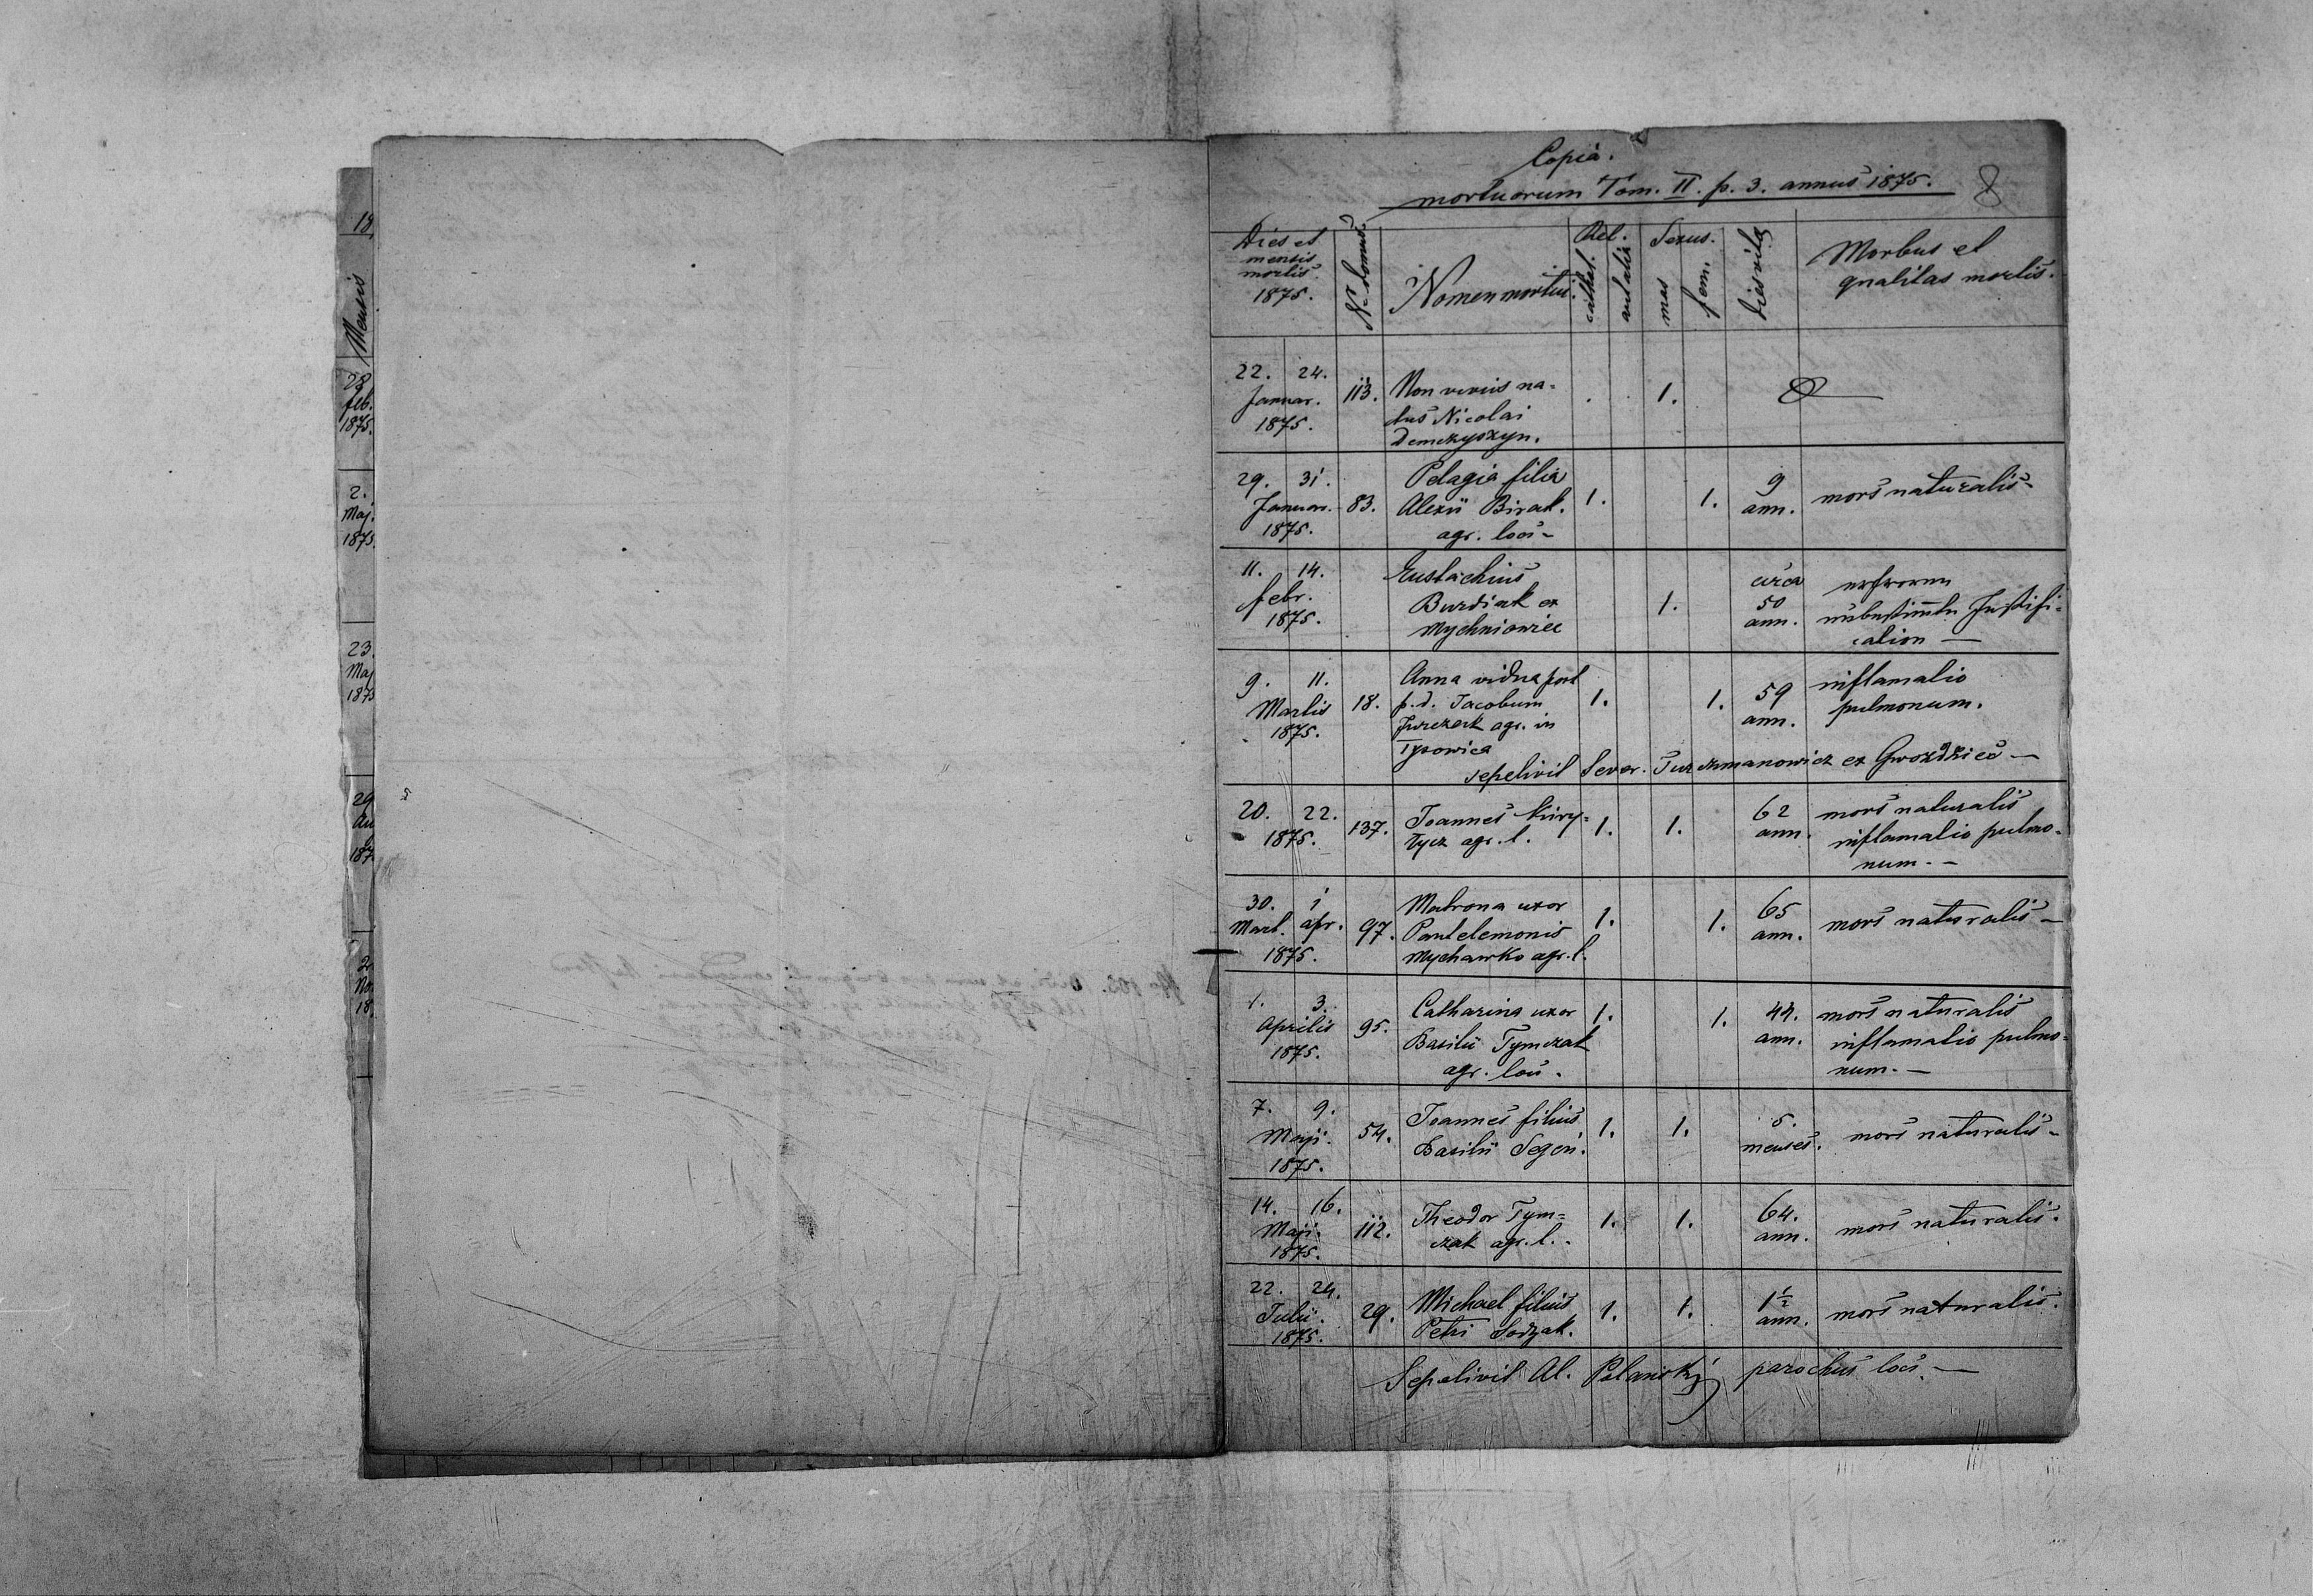 Copia.
mortuorum Tom. II. p. 3. annus 1875. 8
Dies et mensis mortis. 1875. Nr. domus Nomen mortui. Rel. cathol. aut alia Sexus. mas fem. Dies vitæ Morbus et qualitas mortis.
22. 24.
Januar. 113. Non vivus na=
1875. tus Nicolai 1.
Demczyszyn.
29. 31. Pelagia filia 9
Januar. 83. Alexii Birak. 1. 1. ann. mors naturalis -
1875. agr. loci -
11. 14. Eustachius circa
febr. Burdiak ex 1. 50 unbestimmte Justifi=
1875. Mychniowiec ann. cation —
9. 11. Anna vidua post inflamatio
Martis 18. p. d. Jacobum 1. 1. 59 pulmonum.
1875. Jurczak agr. in ann.
Tysowica
sepelivit Sever. Turczmanowicz ex Gwozdziec —
20. 22. 137. Joannes 1. 1. 62 mors naturalis
1875. tycz agr. l. ann. inflamatio pulmo-
num. -
30. 1 Matrona uxor 65
Mart. apr. 97. Pantelemonis 1. 1. ann. mors naturalis —
1875. Mychawko agr. l.
1. 3. Catharina uxor 1. 1. 44. mors naturalis
Aprilis 95. Basilii Tymczak ann. inflamatio pulmo-
1875. agr. loci. num. —
7. 9. Joannes filius 5.
Maji. 54. Basilii Segen. 1. 1. menses. mors naturalis -
1875.
14. 16. Theodor Tym= 64.
Maji. 112. czak agr. l. - 1. 1. ann. mors naturalis.
1875.
22. 24. Michael filius 1½
Julii. 29. Petri 1. 1. ann. mors naturalis.
1875.
Sepelivit Al. Polanskij parochus loci. —
18
Mensis
28
feb.
1875.
2.
Maj.
1875.
23.
Maj
1875
29
Au
187
2
No
18